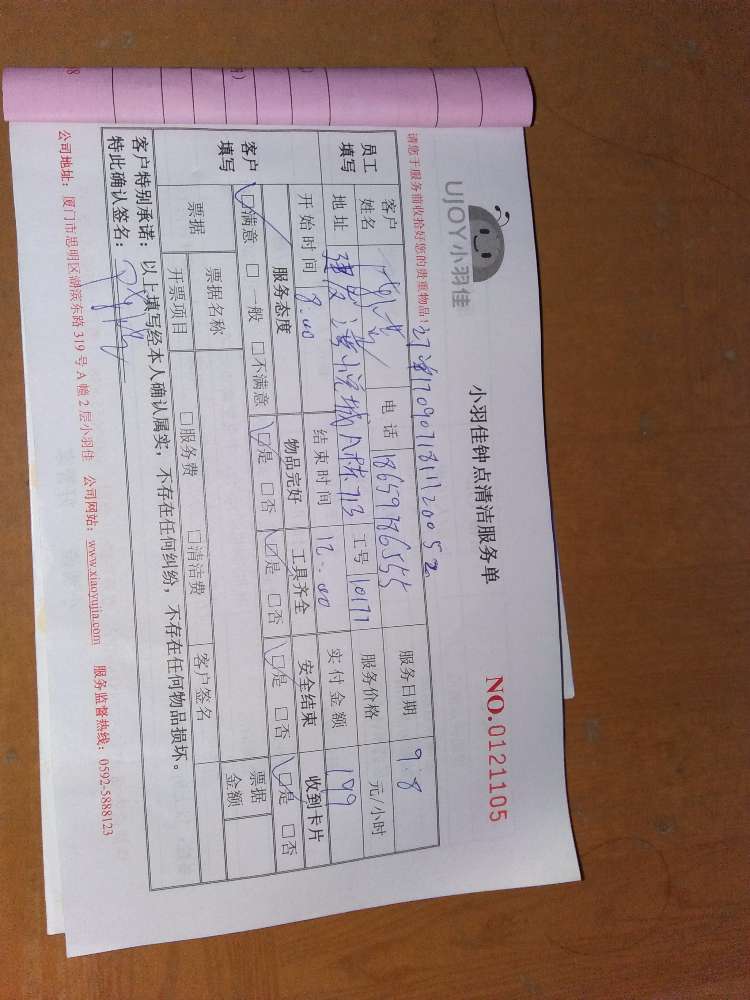 UJOY小羽佳
小羽佳钟点清洁服务单
NO.0121105
请您于服务前收拾好您的贵重物品
员工填写
客户姓名
电话 18659786555
服务日期 9.8
地址 713
工号 10171
服务价格 元/小时
开始时间 8:00
结束时间 12:00
实付金额 199
客户填写
服务态度 物品完好 工具齐全 安全结束 收到卡片
☑满意 □一般 □不满意 ☑是 □否 ☑是 □否 ☑是 □否 ☑是 □否
票据 票据名称 票据金额
开票项目 □服务费 □清洁费 客户签名
客户特别承诺：以上填写经本人确认属实，不存在任何纠纷，不存在任何物品损坏。
特此确认签名：
公司地址：厦门市思明区湖滨东路 319 号 A 幢 2 层小羽佳 公司网站：www.xiaoyujia.com 服务监督热线：0592-5888123